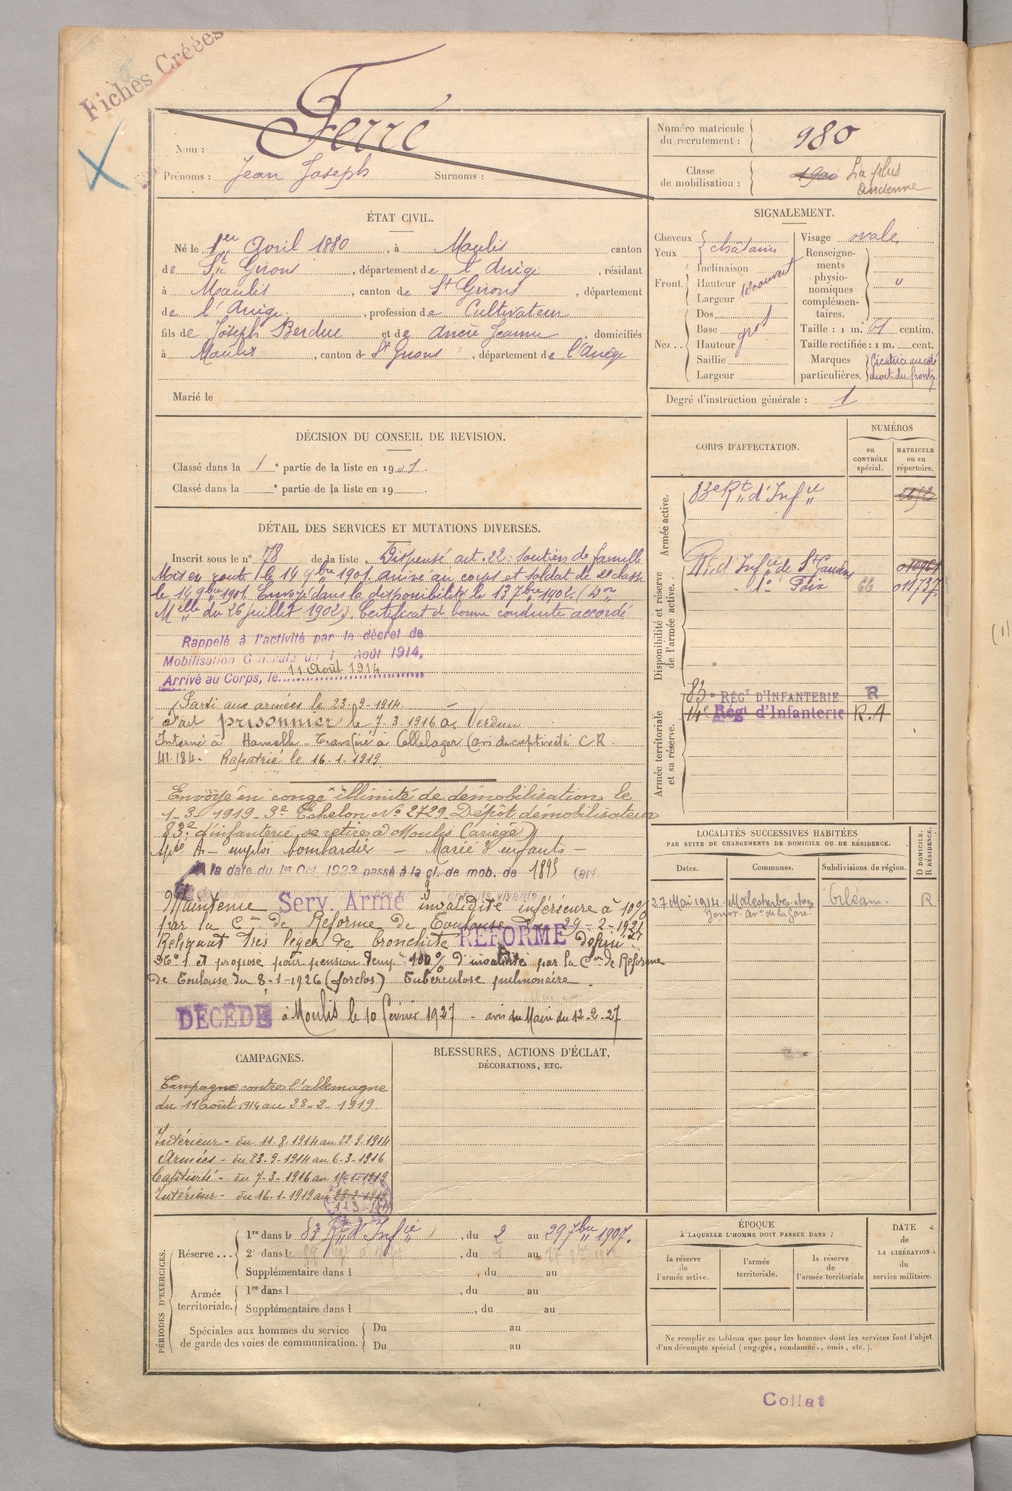 Fiches Créées
Nom : Ferré
Prénoms : Jean Joseph Surnoms :
Numéro matricule du recrutement : 980
Classe de mobilisation : 1900 La plus ancienne
ÉTAT CIVIL.
Né le 1er Avril 1880, à Moulis canton
de St Girons, département de l'Ariège, résidant
à Moulis, canton de St Girons, département
de l'Ariège, profession de Cultivateur
fils de Joseph Berduc et de Jeanne domiciliés
à Moulis, canton de St Girons, département de l'Ariège
Marié le
SIGNALEMENT.
Cheveux
Yeux châtains
Front. Inclinaison
Hauteur découvert
Largeur
Nez .. Dos
Base gros
Hauteur
Saillie
Largeur
Visage ovale
Renseignements physionomiques complémentaires. "
Taille : 1 m. 61 centim.
Taille rectifiée : 1 m. cent.
Marques particulières. Cicatrice au côté droit du front
Degré d'instruction générale : 1
DÉCISION DU CONSEIL DE REVISION.
Classé dans la 1e partie de la liste en 1901.
Classé dans la e partie de la liste en 19
CORPS D'AFFECTATION.
NUMÉROS
au CONTRÔLE spécial.
MATRICULE ou au répertoire.
Armée active.
83e Rt d'Infie
Disponibilité et réserve de l'armée active.
Rt d'Infie de St Gaudens
do Foix 66 011737
Armée territoriale et sa réserve.
83e RÉGt D'INFANTERIE R
14e Régt d'Infanterie R.A
DÉTAIL DES SERVICES ET MUTATIONS DIVERSES.
Inscrit sous le n° 78 de la liste. Dispensé art. 22 : soutien de famille
Mis en route le 14 9bre 1901 arrivé au corps et soldat de 2e classe
le 14 9bre 1901. Envoyé dans la disponibilité le 13 7bre 1902 (Don
Melle du 26 juillet 1902). Certificat de bonne conduite accordé
Rappelé à l'activité par le décret de
Mobilisation Générale du 1 Août 1914.
Arrivé au Corps, le 11 Août 1914
Parti aux armées le 23-9-1914
Fait prisonnier le 7.3.1916 à Verdun
Interné à Hameln. Transféré à Cellelager (avis de captivité CR
41.184. Rapatrié le 16.1.1919
Envoyé en congé illimité de démobilisation le
1-3-1919 3e Échelon N° 2729 Dépôt démobilisateur
83e d'infanterie, se retire à Moulis (Ariège)
Spté A emploi bombardier - Marié 3 enfants -
A la date du 1er Oct. 1923 passé à la cl. de mob. de 1895 (art.
Maintenu Serv. Armé invalidité inférieure à 10%
par la Con de Réforme de Toulouse du 29-2-192
Reliquat très léger de bronchite RÉFORMÉ défin.
N° 1 et proposé pour pension temp. 100% d'invalidité par la Con de Réforme
de Toulouse du 8-1-1926 (forclos) Tuberculose pulmonaire
DÉCÉDÉ à Moulis le 10 février 1927 - avis du Maire du 12-2-27
LOCALITÉS SUCCESSIVES HABITÉES
PAR SUITE DE CHANGEMENTS DE DOMICILE OU DE RÉSIDENCE.
Dates. Communes. Subdivisions de région. D DOMICILE. R RÉSIDENCE.
27 Mai 1914 Malesherbes chez Orléans R
av. de la Gare
CAMPAGNES.
Campagne contre l'Allemagne
du 11 Août 1914 au 28-2-1919
Intérieur - du 11.8.1914 au 22.9.1914
Armées - du 23-9-1914 au 6-3-1916
Captivité - du 7-3-1916 au 15-1-1919
Intérieur - du 16-1-1919 au 28-2-1919
BLESSURES, ACTIONS D'ÉCLAT,
DÉCORATIONS, ETC.
PÉRIODES D'EXERCICES.
Réserve ... 1re dans le 83 Rt d'Infie, du 2 au 29 7bre 1907.
2e dans le
Supplémentaire dans l , du au
Armée territoriale. 1re dans l , du au
Supplémentaire dans l , du au
Spéciales aux hommes du service de garde des voies de communication.
Du au
Du au
ÉPOQUE
À LAQUELLE L'HOMME DOIT PASSER DANS :
la réserve de l'armée active.
l'armée territoriale.
la réserve de l'armée territoriale
DATE de LA LIBÉRATION du service militaire.
Ne remplir ce tableau que pour les hommes dont les services font l'objet
d'un décompte spécial (engagés, condamnés, omis, etc.).
Collat